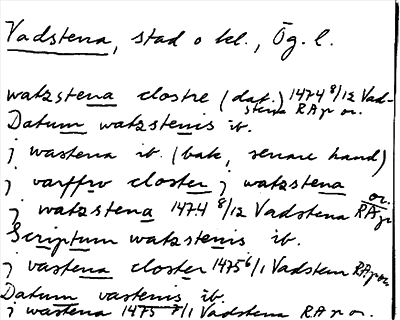 Vadstena, stad o kl., Ög. l.
watzstena clostre (dat.) 1474 8/12 Vad-
stena RAp or.
Datum watzstenis ib.
j wastena ib. (bak, senare hand)
j varffrv closter j watzstena
j watzstena 1474 8/12 Vadstena RAp or.
Scriptum watzstenis ib.
j vastena closter 1475 6/1 Vadstena RAp or.
Datum vastenis ib.
j wastena 1475 7/1 Vadstena RAp or.